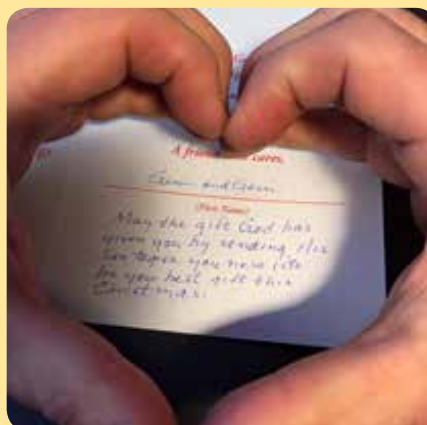 A friend cares,
and
(First Name)
May the gift God has
given you by sending His
Son to give you new life
be your best gift this
Christmas.